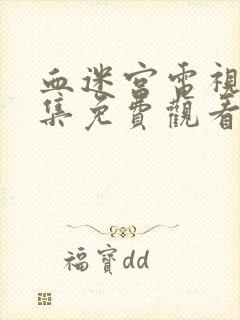 血迷宮電視
集免費觀看
福寶dd